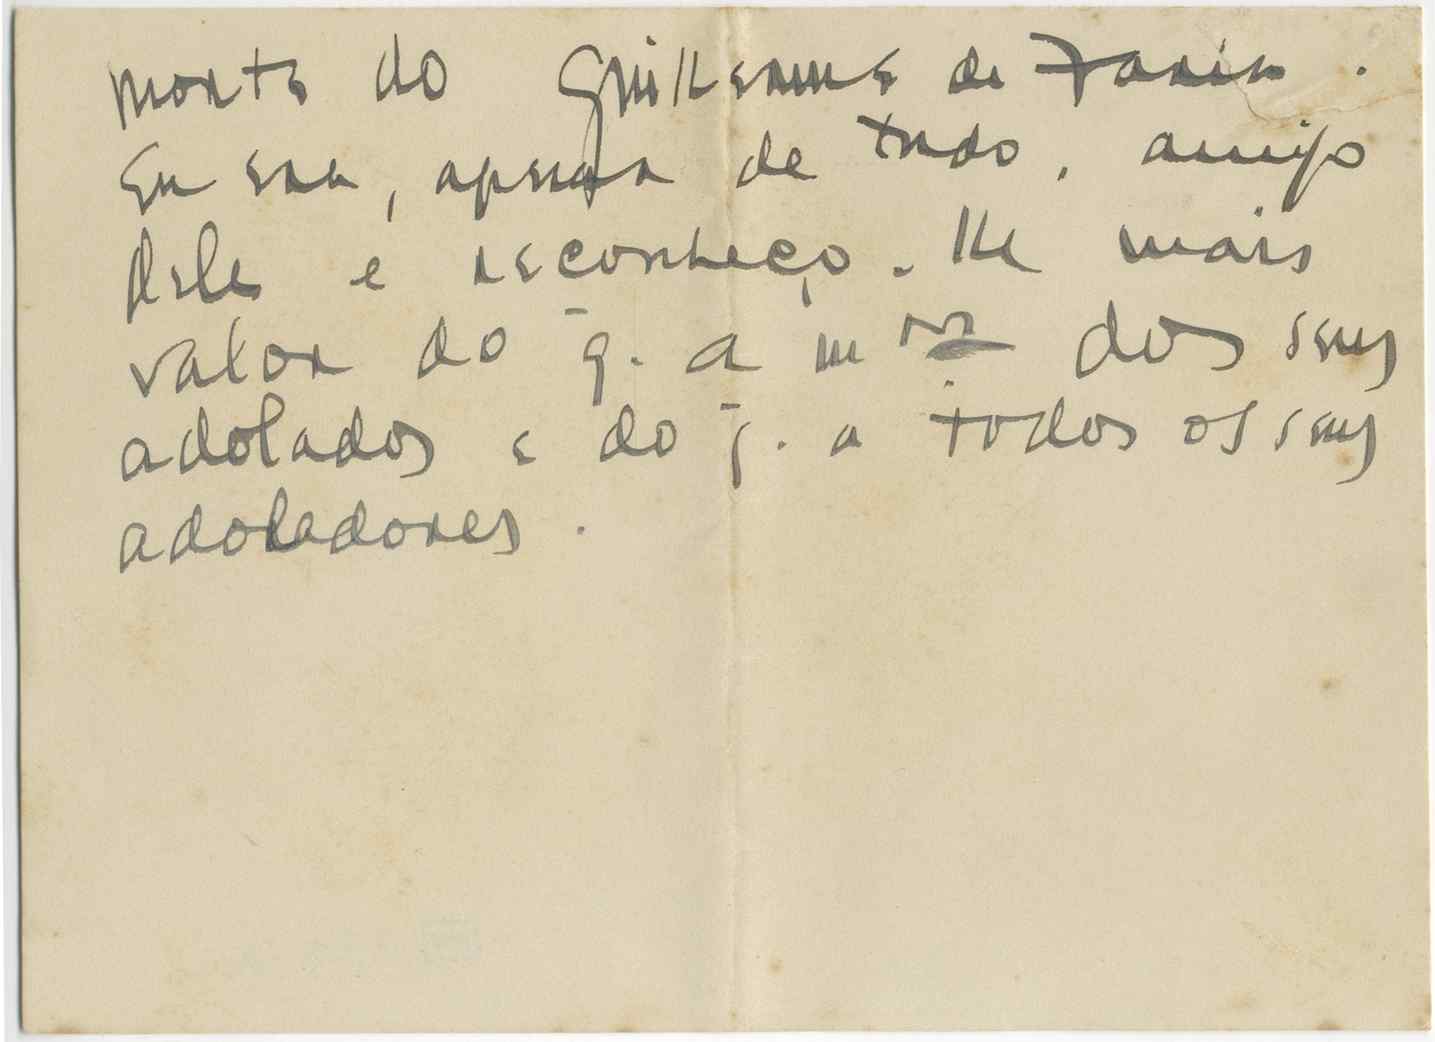 morte do Guilherme de Faria.
Eu era, apesar de tudo, amigo
dele e reconheço-lhe mais
valor do q̄. a m.or pte dos seus
adolados e do q̄. a todos os seus
adoladores.